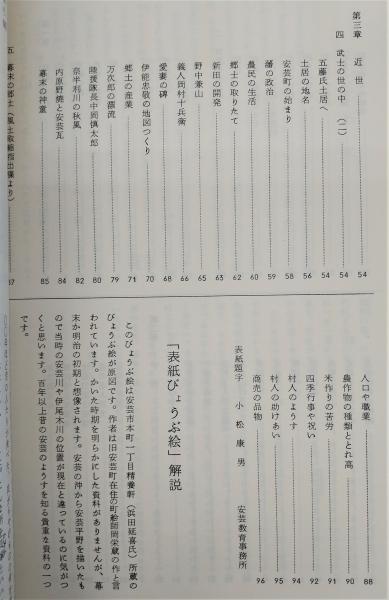 第三章 近世 54
四 武士の世の中 (二) 54
五藤氏土居へ 54
土居の地名 56
安芸町の始まり 58
藩の政治 59
農民の生活 60
郷士の取りたて 62
新田の開発 63
野中兼山 65
義人岡村十兵衛 66
愛妻の碑 68
伊能忠敬の地図つくり 70
郷土の産業 71
万次郎の漂流 79
陸援隊長中岡慎太郎 80
奈半利川の秋風 82
内原野焼と安芸瓦 84
幕末の神童 85
五 幕末の郷土 (風土取縮指出牒より) 87
人口や職業 88
農作物の種類ととれ高 90
米作りの苦労 91
四季行事や祝い 92
村人のようす 94
村人の助けあい 95
商売の品物 96
表紙題字 小松康男 安芸教育事務所
「表紙びょうぶ絵」解説
このびょうぶ絵は安芸市本町一丁目精養軒(浜田延喜氏)所蔵の
びょうぶ絵が原図です。作者は旧安芸町在住の町絵師岡栄蔵の作と言
われています。かいた時期を明らかにした資料がありませんが、幕
末か明治の初期と想像されます。安芸の沖から安芸平野を描いたも
ので当時の安芸川や伊尾木川の位置が現在と違っているのに気がつ
くと思います。百年以上昔の安芸のようすを知る貴重な資料の一つ
です。